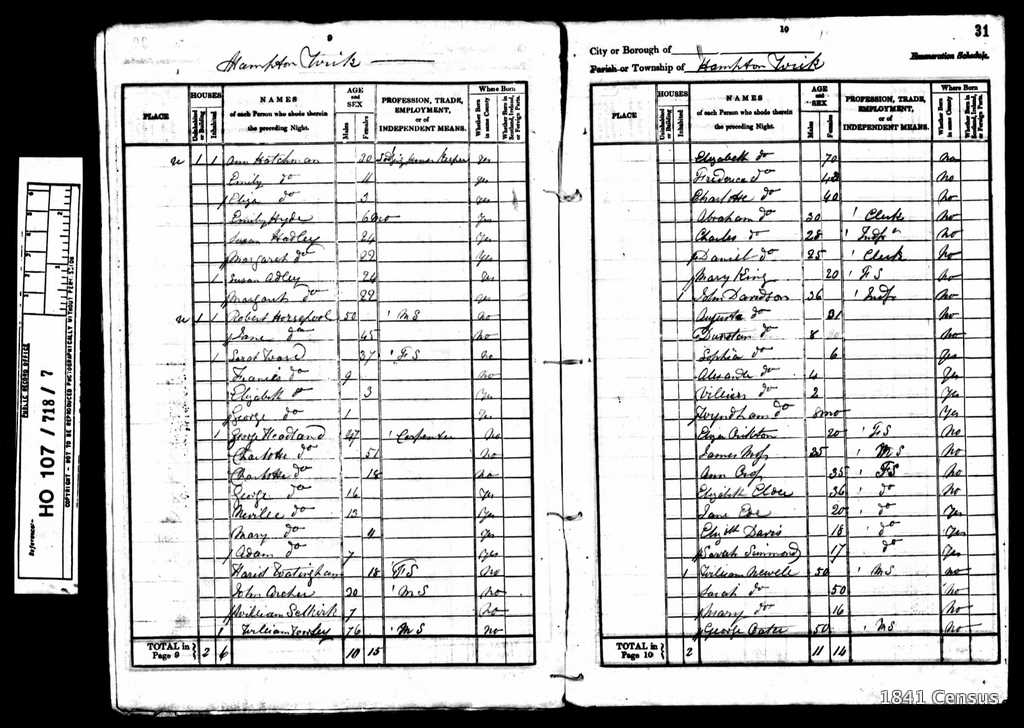 9
Hampton Wick
PLACE
HOUSES
Uninhabited or Building
Inhabited
NAMES
of each Person who abode therein the preceding Night.
AGE and SEX
Males
Females
PROFESSION, TRADE, EMPLOYMENT, or of INDEPENDENT MEANS.
Where Born
Whether Born in same County
Whether Born in Scotland, Ireland, or Foreign Parts.
1 1 Ann Hotchman 20 Keeper Yes
Emily do 11 Yes
Eliza do 3 Yes
Emily Hyde 6 mo Yes
Susan Hadley 24 Yes
Margaret do 22 Yes
1 Susan Adley 24 Yes
Margaret do 22 Yes
1 1 Robert Horsepool 50 M S No
Jane do 45 No
1 Sarah Ward 37 F S No
Francis do 9 No
Elizabeth do 3 Yes
George do 1 Yes
1 George Headland 47 Carpenter No
Charlotte do 51 No
Charlotte do 18 No
George do 16 Yes
Neville do 13 Yes
Mary do 11 Yes
Adam do 7 Yes
18 F S No
John Archer 20 M S No
William Selkirk 7 No
1 William Towley 76 M S No
TOTAL in Page 9 2 6 10 15
10
31
City or Borough of
Parish or Township of Hampton Wick
Enumeration Schedule.
PLACE
HOUSES
Uninhabited or Building
Inhabited
NAMES
of each Person who abode therein the preceding Night.
AGE and SEX
Males
Females
PROFESSION, TRADE, EMPLOYMENT, or of INDEPENDENT MEANS.
Where Born
Whether Born in same County
Whether Born in Scotland, Ireland, or Foreign Parts.
Elizabeth do 70 No
Frederica do 42 No
Charlotte do 40 No
Abraham do 30 Clerk No
Charles do 28 Indpt No
Daniel do 25 Clerk No
Mary King 20 F S No
1 John Davidson 36 Indpt No
Augusta do 31 No
Dunstan do 8 No
Sophia do 6 Yes
Alexander do 4 Yes
Villiers do 2 Yes
Wyndham do 8 mo Yes
Eliza 20 F S No
James Moss 25 M S No
Ann 35 F S No
Elizabeth 36 do No
Jane Eve 20 do Yes
Elizth Davis 18 do Yes
Sarah Simmonds 17 do Yes
1 William Newell 50 M S No
Sarah do 50 No
Mary do 16 No
George 50 M S No
TOTAL in Page 10 2 11 14
PUBLIC RECORD OFFICE
Reference:-
HO 107/718/7
COPYRIGHT - NOT TO BE REPRODUCED PHOTOGRAPHICALLY WITHOUT PERMISSION
1841 Census